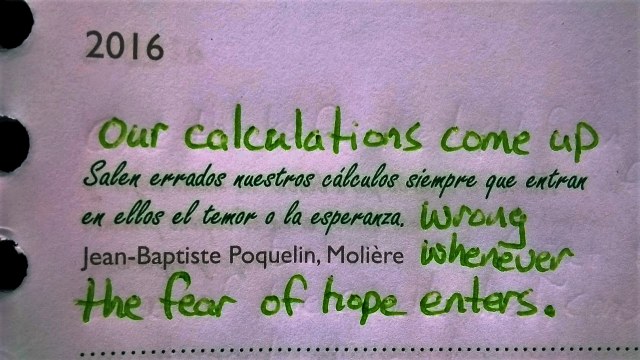 2016
Our calculations come up
Salen errados nuestros cálculos siempre que entran
en ellos el temor o la esperanza. wrong
Jean-Baptiste Poquelin, Molière whenever
the fear of hope enters.